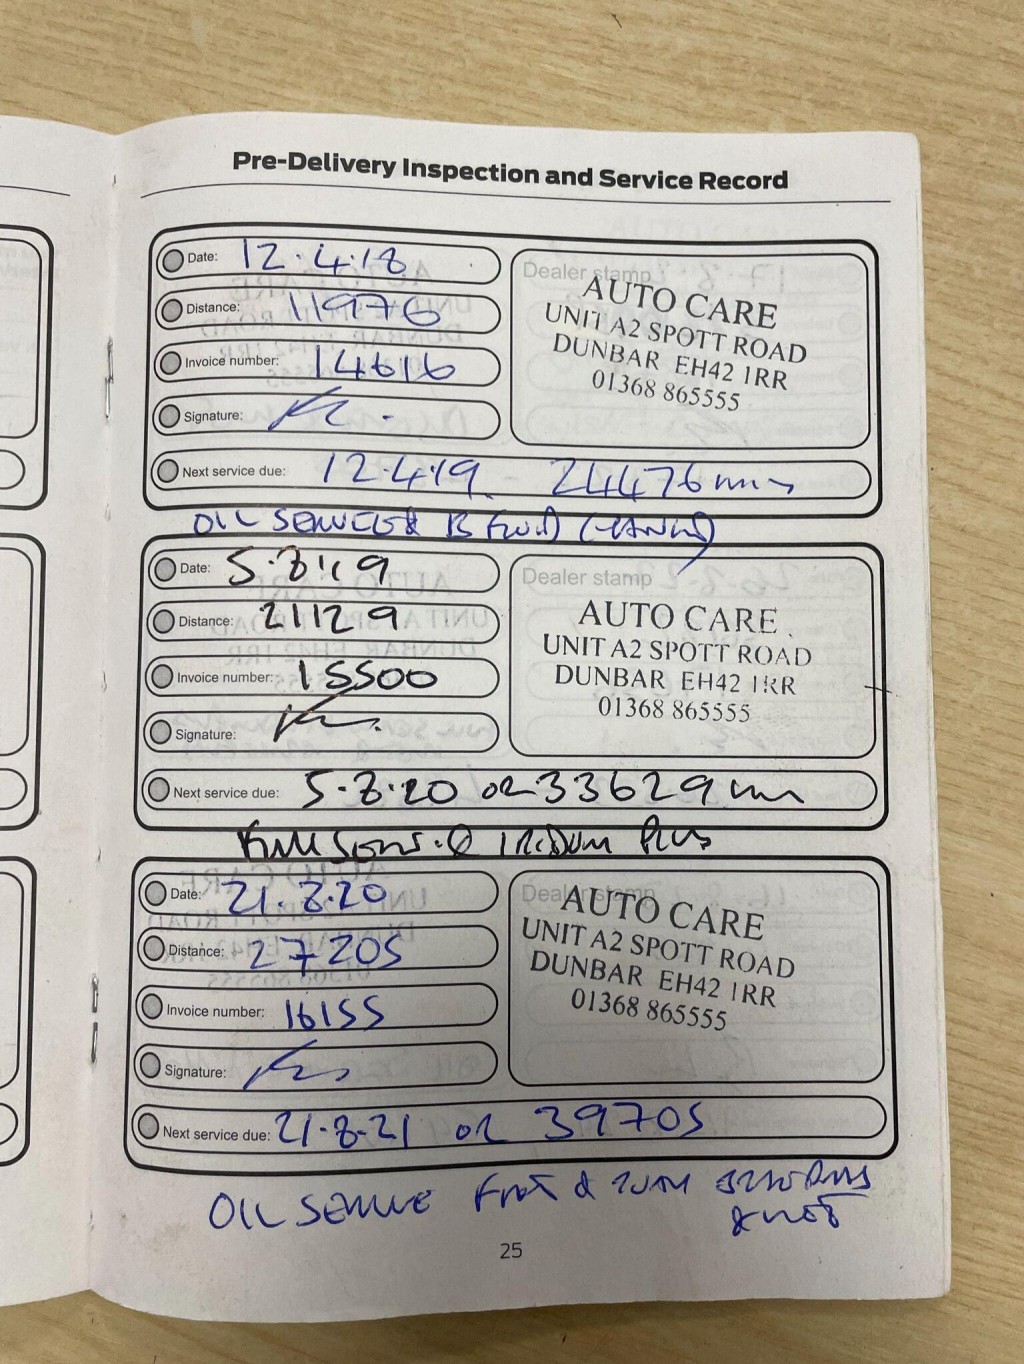 Pre-Delivery Inspection and Service Record
Date: 12.4.18
Distance: 11976
Invoice number: 14616
Signature:
Next service due: 12.4.19. 24476
Dealer stamp
AUTO CARE
UNIT A2 SPOTT ROAD
DUNBAR EH42 1RR
01368 865555
OIL SERVICE & B FLUID
Date: 5.8.19
Distance: 21129
Invoice number: 15500
Signature:
Next service due: 5.8.20 or 33629
Dealer stamp
AUTO CARE
UNIT A2 SPOTT ROAD
DUNBAR EH42 1RR
01368 865555
IRIDIUM Plus
Date: 21.8.20
Distance: 27205
Invoice number: 16155
Signature:
Next service due: 21.8.21 or 39705
Dealer stamp
AUTO CARE
UNIT A2 SPOTT ROAD
DUNBAR EH42 1RR
01368 865555
OIL SERVICE &
25